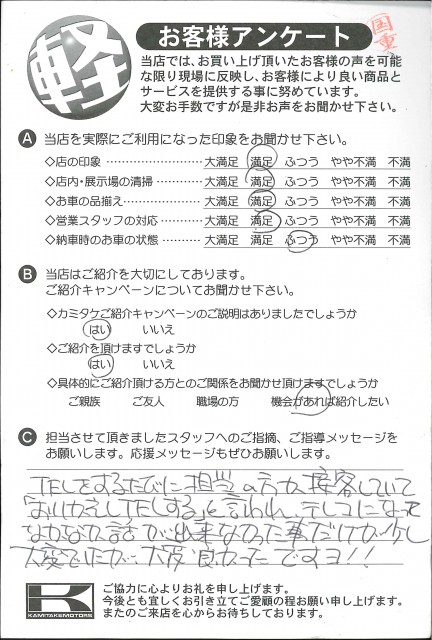 軽
お客様アンケート
国重
当店では、お買い上げ頂いたお客様の声を可能
な限り現場に反映し、お客様により良い商品と
サービスを提供する事に努めています。
大変お手数ですが是非お声をお聞かせ下さい。
A 当店を実際にご利用になった印象をお聞かせ下さい。
◇店の印象 …………………… 大満足 満足 ふつう やや不満 不満
◇店内・展示場の清掃 ………… 大満足 満足 ふつう やや不満 不満
◇お車の品揃え ……………… 大満足 満足 ふつう やや不満 不満
◇営業スタッフの対応 ………… 大満足 満足 ふつう やや不満 不満
◇納車時のお車の状態 ………… 大満足 満足 ふつう やや不満 不満
B 当店はご紹介を大切にしております。
ご紹介キャンペーンについてお聞かせ下さい。
◇カミタケご紹介キャンペーンのご説明はありましたでしょうか
はい いいえ
◇ご紹介を頂けますでしょうか
はい いいえ
◇具体的にご紹介頂ける方とのご関係をお聞かせ頂けますでしょうか
ご親族 ご友人 職場の方 機会があれば紹介したい
C 担当させて頂きましたスタッフへのご指摘、ご指導メッセージを
お願いします。応援メッセージもぜひお願いします。
TELをするたびに担当の方が接客していて
「おりかえしTELする」と言われ、
なかなか話が出来なかった事だけが少し
大変でしたが、大変良かったですヨ!!
K
KAMITAKE MOTORS
ご協力に心よりお礼を申し上げます。
今後とも宜しくお引き立てご愛顧の程お願い申し上げます。
またのご来店を心からお待ちしております。